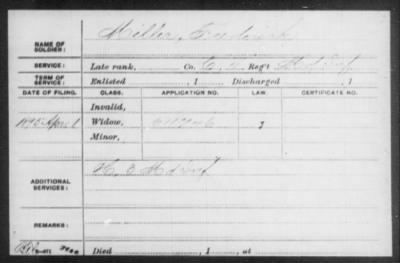 Miller, Frederick
NAME OF
SOLDIER:
SERVICE: Late rank, Co. Reg't Md Inf
TERM OF
SERVICE: Enlisted , 1 Discharged , 1
DATE OF FILING. CLASS. APPLICATION NO. LAW. CERTIFICATE NO.
Invalid,
1895 April 1 Widow,
Minor,
ADDITIONAL
SERVICES: Md Inf
REMARKS:
Died , 1 , at